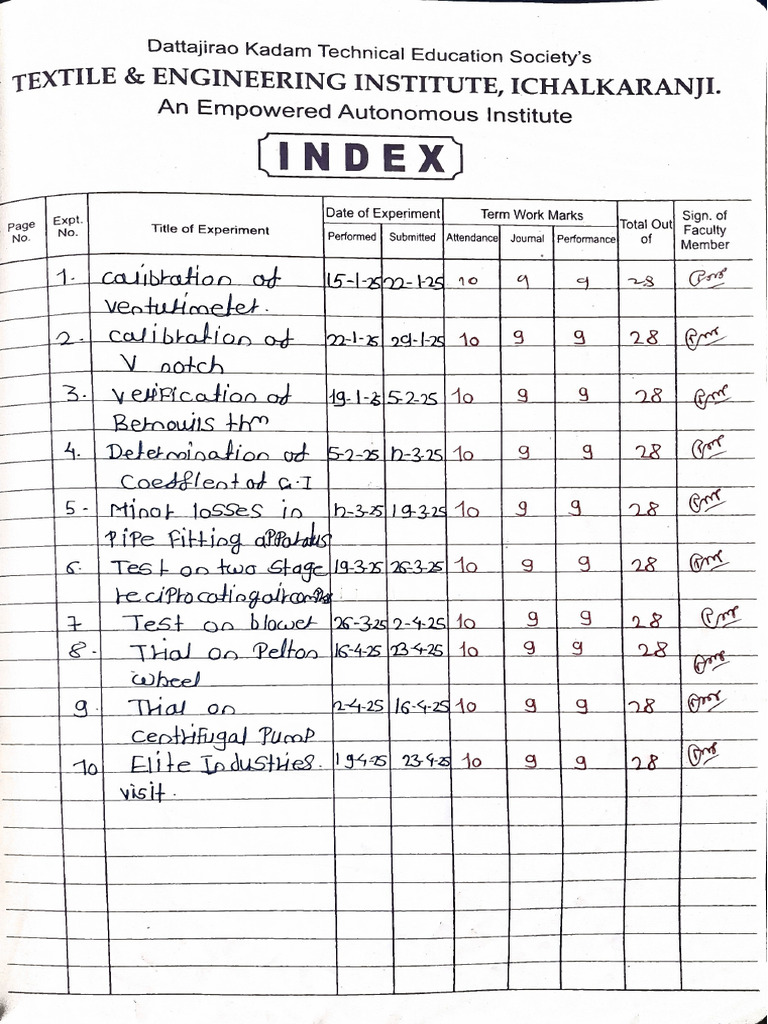 Dattajirao Kadam Technical Education Society's
TEXTILE & ENGINEERING INSTITUTE, ICHALKARANJI.
An Empowered Autonomous Institute
INDEX
Page No. Expt. No. Title of Experiment Date of Experiment Term Work Marks Total Out of Sign. of Faculty Member
Performed Submitted Attendance Journal Performance
1. calibration of 15-1-25 22-1-25 10 9 9 28
venturimeter.
2. calibration of 22-1-25 29-1-25 10 9 9 28
V notch
3. verification of 19-1-25 5-2-25 10 9 9 28
Bernoulls thm
4. Determination of 5-2-25 12-3-25 10 9 9 28
Coefflent of G.I
5. Minor losses in 12-3-25 19-3-25 10 9 9 28
pipe fitting apparatus
6. Test on two stage 19-3-25 26-3-25 10 9 9 28
reciprocating air
7 Test on blower 26-3-25 2-4-25 10 9 9 28
8. Trial on Pelton 16-4-25 23-4-25 10 9 9 28
wheel
9. Trial on 2-4-25 16-4-25 10 9 9 28
centrifugal Pump
10 Elite Industries. 19-4-25 23-4-25 10 9 9 28
visit.